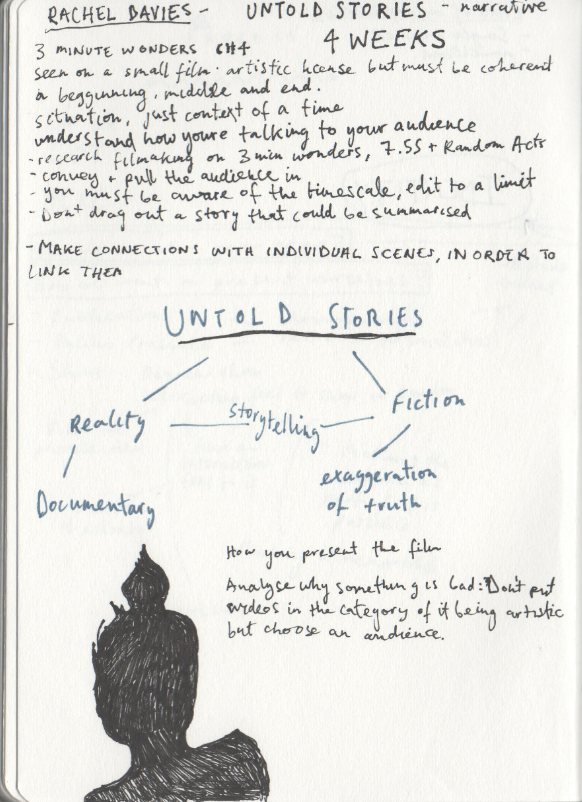 RACHEL DAVIES - UNTOLD STORIES - narrative
4 WEEKS
3 MINUTE WONDERS CH4
seen on a small film. artistic license but must be coherent
a beggining, middle and end.
situation, just context of a time
understand how youre talking to your audience
- research filmaking on 3 min wonders, 7.5S + Random Acts
- convey + pull the audience in
- you must be aware of the timescale, edit to a limit
- Don't drag out a story that could be summarised
- MAKE CONNECTIONS WITH INDIVIDUAL SCENES, IN ORDER TO
LINK THEM
UNTOLD STORIES
Reality Storytelling Fiction
Documentary
exaggeration
of truth
How you present the film
Analyse why something is bad: Don't put
videos in the category of it being artistic
but choose an audience.